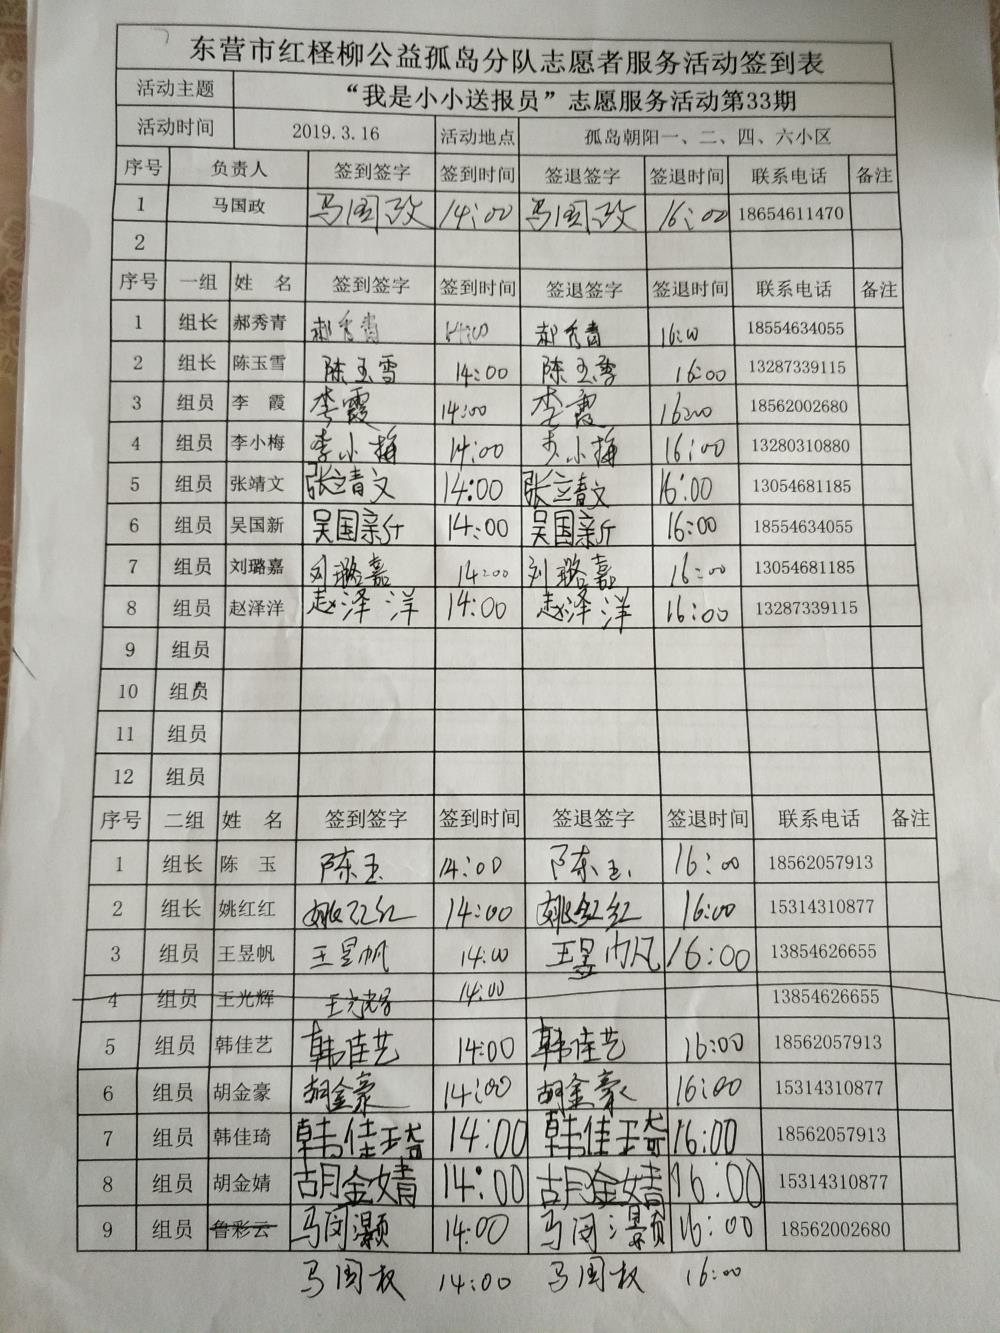 东营市红柽柳公益孤岛分队志愿者服务活动签到表
活动主题 “我是小小送报员”志愿服务活动第33期
活动时间 2019.3.16 活动地点 孤岛朝阳一、二、四、六小区
序号 负责人 签到签字 签到时间 签退签字 签退时间 联系电话 备注
1 马国政 马国政 14:00 马国政 16:00 18654611470
2
序号 一组 姓 名 签到签字 签到时间 签退签字 签退时间 联系电话 备注
1 组长 郝秀青 郝秀青 14:00 郝秀青 16:00 18554634055
2 组长 陈玉雪 陈玉雪 14:00 陈玉雪 16:00 13287339115
3 组员 李 霞 李霞 14:00 李霞 16:00 18562002680
4 组员 李小梅 李小梅 14:00 李小梅 16:00 13280310880
5 组员 张靖文 张靖文 14:00 张靖文 16:00 13054681185
6 组员 吴国新 吴国新 14:00 吴国新 16:00 18554634055
7 组员 刘璐嘉 刘璐嘉 14:00 刘璐嘉 16:00 13054681185
8 组员 赵泽洋 赵泽洋 14:00 赵泽洋 16:00 13287339115
9 组员
10 组员
11 组员
12 组员
序号 二组 姓 名 签到签字 签到时间 签退签字 签退时间 联系电话 备注
1 组长 陈 玉 陈玉 14:00 陈玉 16:00 18562057913
2 组长 姚红红 姚红红 14:00 姚红红 16:00 15314310877
3 组员 王昱帆 王昱帆 14:00 王昱帆 16:00 13854626655
4 组员 王光辉 王光辉 14:00 13854626655
5 组员 韩佳艺 韩佳艺 14:00 韩佳艺 16:00 18562057913
6 组员 胡金豪 胡金豪 14:00 胡金豪 16:00 15314310877
7 组员 韩佳琦 韩佳琦 14:00 韩佳琦 16:00 18562057913
8 组员 胡金婧 胡金婧 14:00 胡金婧 16:00 15314310877
9 组员 鲁彩云 马闵灏 14:00 马闵灏 16:00 18562002680
马国权 14:00 马国权 16:00